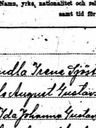 Namn, yrke, nationalitet och rel
samt tid för
Irene Sjöst
August Gustav
Ida Johanna Gustav